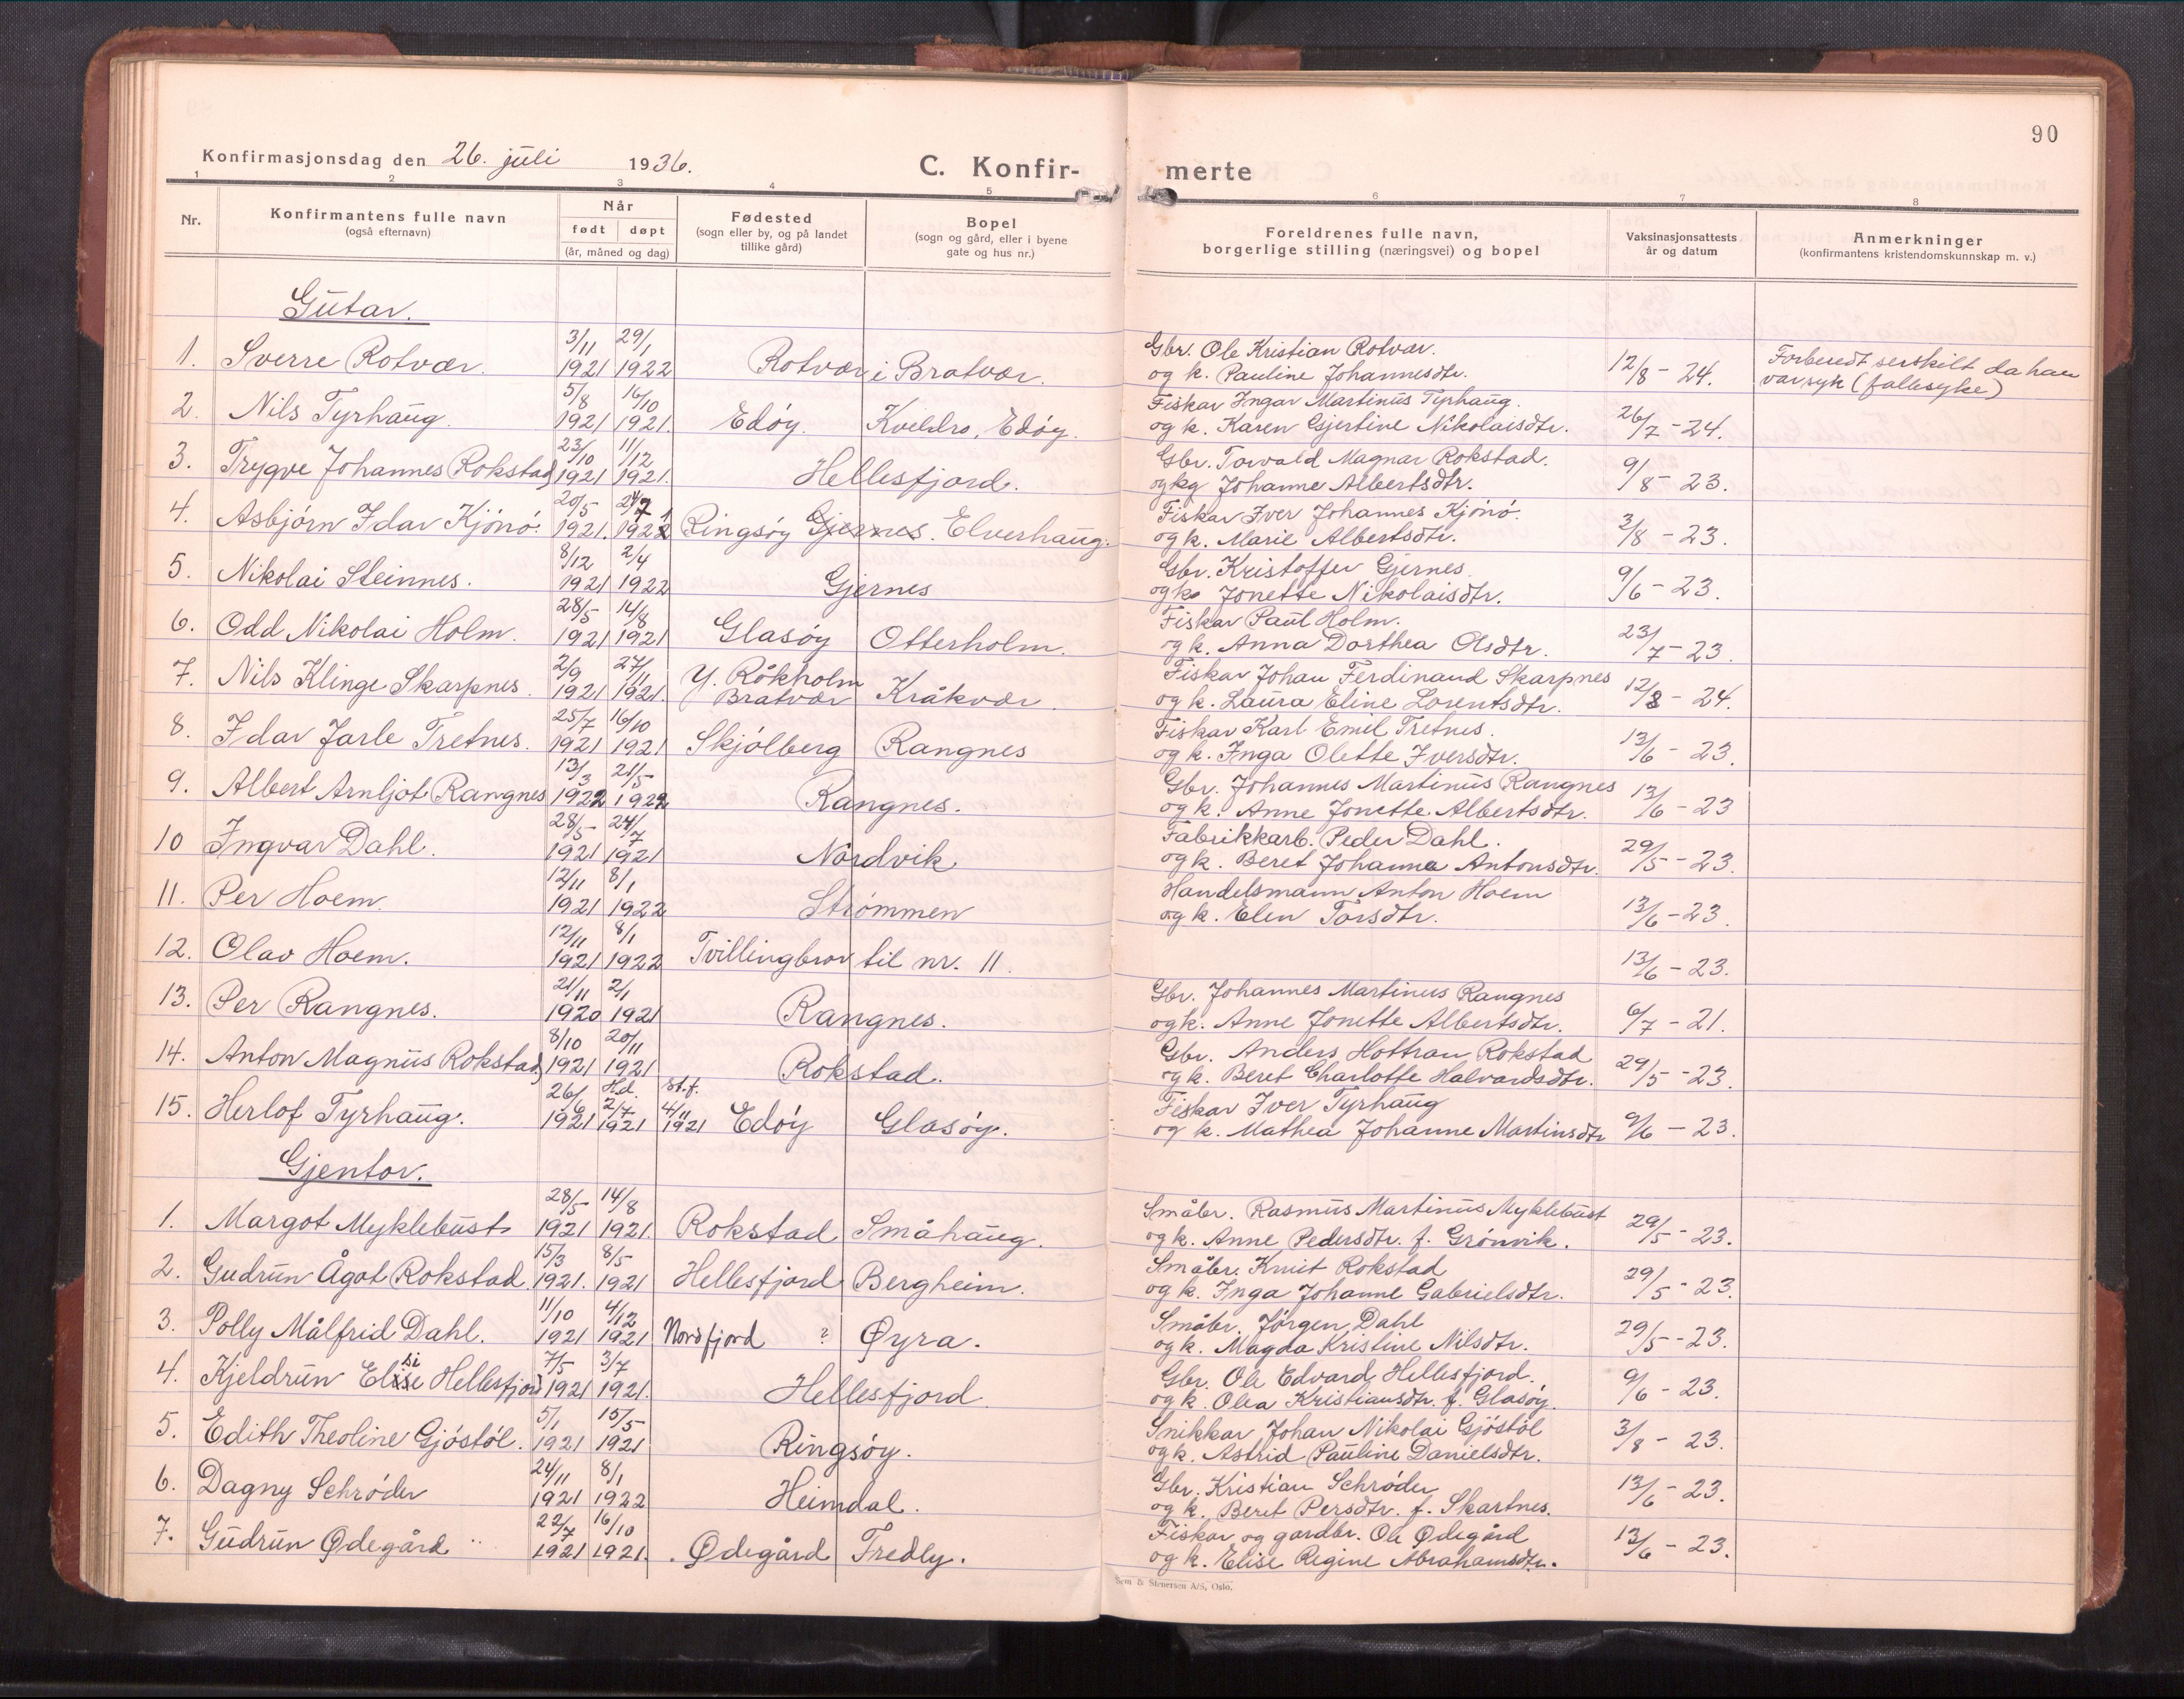 90
Konfirmasjonsdag den 26. juli 1936.
C. Konfir-
merte
1 2 3 4 5 6 7 8
Nr.
Konfirmantens fulle navn
(også efternavn)
Når
født døpt
(år, måned og dag)
Fødested
(sogn eller by, og på landet
tillike gård)
Bopel
(sogn og gård, eller i byene
gate og hus nr.)
Foreldrenes fulle navn,
borgerlige stilling (næringsvei) og bopel
Vaksinasjonsattests
år og datum
Anmerkninger
(konfirmantens kristendomskunnskap m. v.)
Gutar.
1. Sverre Rotvær. 3/11 1921 29/1 1922 Rotvær i Bratvær.
Gbr. Ole Kristian Rotvær.
og k. Pauline Johannesdtr. 12/8 - 24.
Forberedt serskilt da han
var syk (fallesyke)
2. Nils Tyrhaug. 5/8 1921 16/10 1921. Edøy. Kveldro, Edøy.
Fiskar Ingar Martinus Tyrhaug.
og k. Karen Gjertine Nikolaisdtr. 26/7 - 24.
3. Trygve Johannes Rokstad 23/10 1921 11/12 1921. Hellesfjord.
Gbr. Torvald Magnar Rokstad.
og kg Johanne Albertsdtr. 9/8 - 23.
4. Asbjørn Idar Kjønø. 20/5 1921. 24/7 1921 Ringsøy Gjernes. Elverhaug.
Fiskar Iver Johannes Kjønø.
og k. Marie Albertsdtr. 3/8 - 23.
5. Nikolai Steinnes. 8/12 1921 2/4 1922 Gjernes
Gbr. Kristoffer Gjernes
og k. Jonette Nikolaisdtr. 9/6 - 23.
6. Odd Nikolai Holm. 28/5 1921 14/8 1921 Glasøy Otterholm.
Fiskar Paul Holm.
og k. Anna Dorthea Olsdtr. 23/7 - 23.
7. Nils Klinge Skarpnes. 2/9 1921 27/11 1921. Y. Råkholm
Bratvær Kråkvær.
Fiskar Johan Ferdinand Skarpnes
og k. Laura Eline Lorentsdtr. 12/8 - 24.
8. Idar Jarle Tretnes. 25/7 1921 16/10 1921 Skjølberg Rangnes
Fiskar Karl Emil Tretnes.
og k. Inga Olette Iversdtr. 13/6 - 23.
9. Albert Arnljot Rangnes 13/3 1922 21/5 1922 Rangnes.
Gbr. Johannes Martinus Rangnes
og k. Anne Jonette Albertsdtr. 13/6 - 23
10 Ingvar Dahl. 28/5 1921 24/7 1921 Nordvik
Fabrikkarb. Peder Dahl.
og k. Beret Johanna Antonsdtr. 29/5 - 23.
11. Per Hoem. 12/11 1921 8/1 1922 Strømmen
Handelsmann Anton Hoem
og k. Elen Torsdtr. 13/6 - 23.
12. Olav Hoem. 12/11 1921 8/1 1922 Tvillingbror til nr. 11. 13/6 - 23.
13. Per Rangnes. 21/11 1920 2/1 1921 Rangnes.
Gbr. Johannes Martinus Rangnes
og k. Anne Jonette Albertsdtr. 6/7 - 21.
14. Anton Magnus Rokstad 8/10 1921 20/11 1921 Rokstad.
Gbr. Anders Hottran Rokstad
og k. Beret Charlotte Halvardsdtr. 29/5 - 23.
15. Herlof Tyrhaug. 26/6 1921 H.d. 2/7 1921 st.f. 4/11 1921 Edøy Glasøy.
Fiskar Iver Tyrhaug
og k. Mathea Johanne Martinsdtr 9/6 - 23.
Gjentor.
1. Margot Myklebust 28/5 1921 14/8 1921. Rokstad Småhaug.
Småbr. Rasmus Martinus Myklebust
og k. Anne Pedersdtr. f. Grønvik. 29/5 - 23.
2. Gudrun Ågot Rokstad. 15/3 1921. 8/5 1921 Hellesfjord Bergheim.
Småbr. Knut Rokstad
og k. Inga Johanne Gabrielsdtr. 29/5 - 23.
3. Polly Målfrid Dahl. 11/10 1921 4/12 1921 Nordfjord ? Øyra.
Småbr. Jørgen Dahl
og k. Magda Kristine Nilsdtr. 29/5 - 23.
4. Kjeldrun Elise si Hellesfjord 7/5 1921 3/7 1921. Hellesfjord
Gbr. Ole Edvard Hellesfjord.
og k. Olea Kristiansdtr. f. Glasøy. 9/6 - 23.
5. Edith Theoline Gjøstøl. 5/1 1921 15/5 1921 Ringsøy.
Snikkar Johan Nikolai Gjøstøl
og k. Astrid Pauline Danielsdtr. 3/8 - 23.
6. Dagny Schrøder 24/11 1921 8/1 1922 Heimdal.
Gbr. Kristian Schrøder
og k. Beret Persdtr. f. Skartnes. 13/6 - 23.
7. Gudrun Ødegård 22/7 1921 16/10 1921. Ødegård Fredly.
Fiskar og gardbr. Ole Ødegård
og k. Elise Regine Abrahamsdtr. 13/6 - 23.
Sem & Stenersen A/S, Oslo.